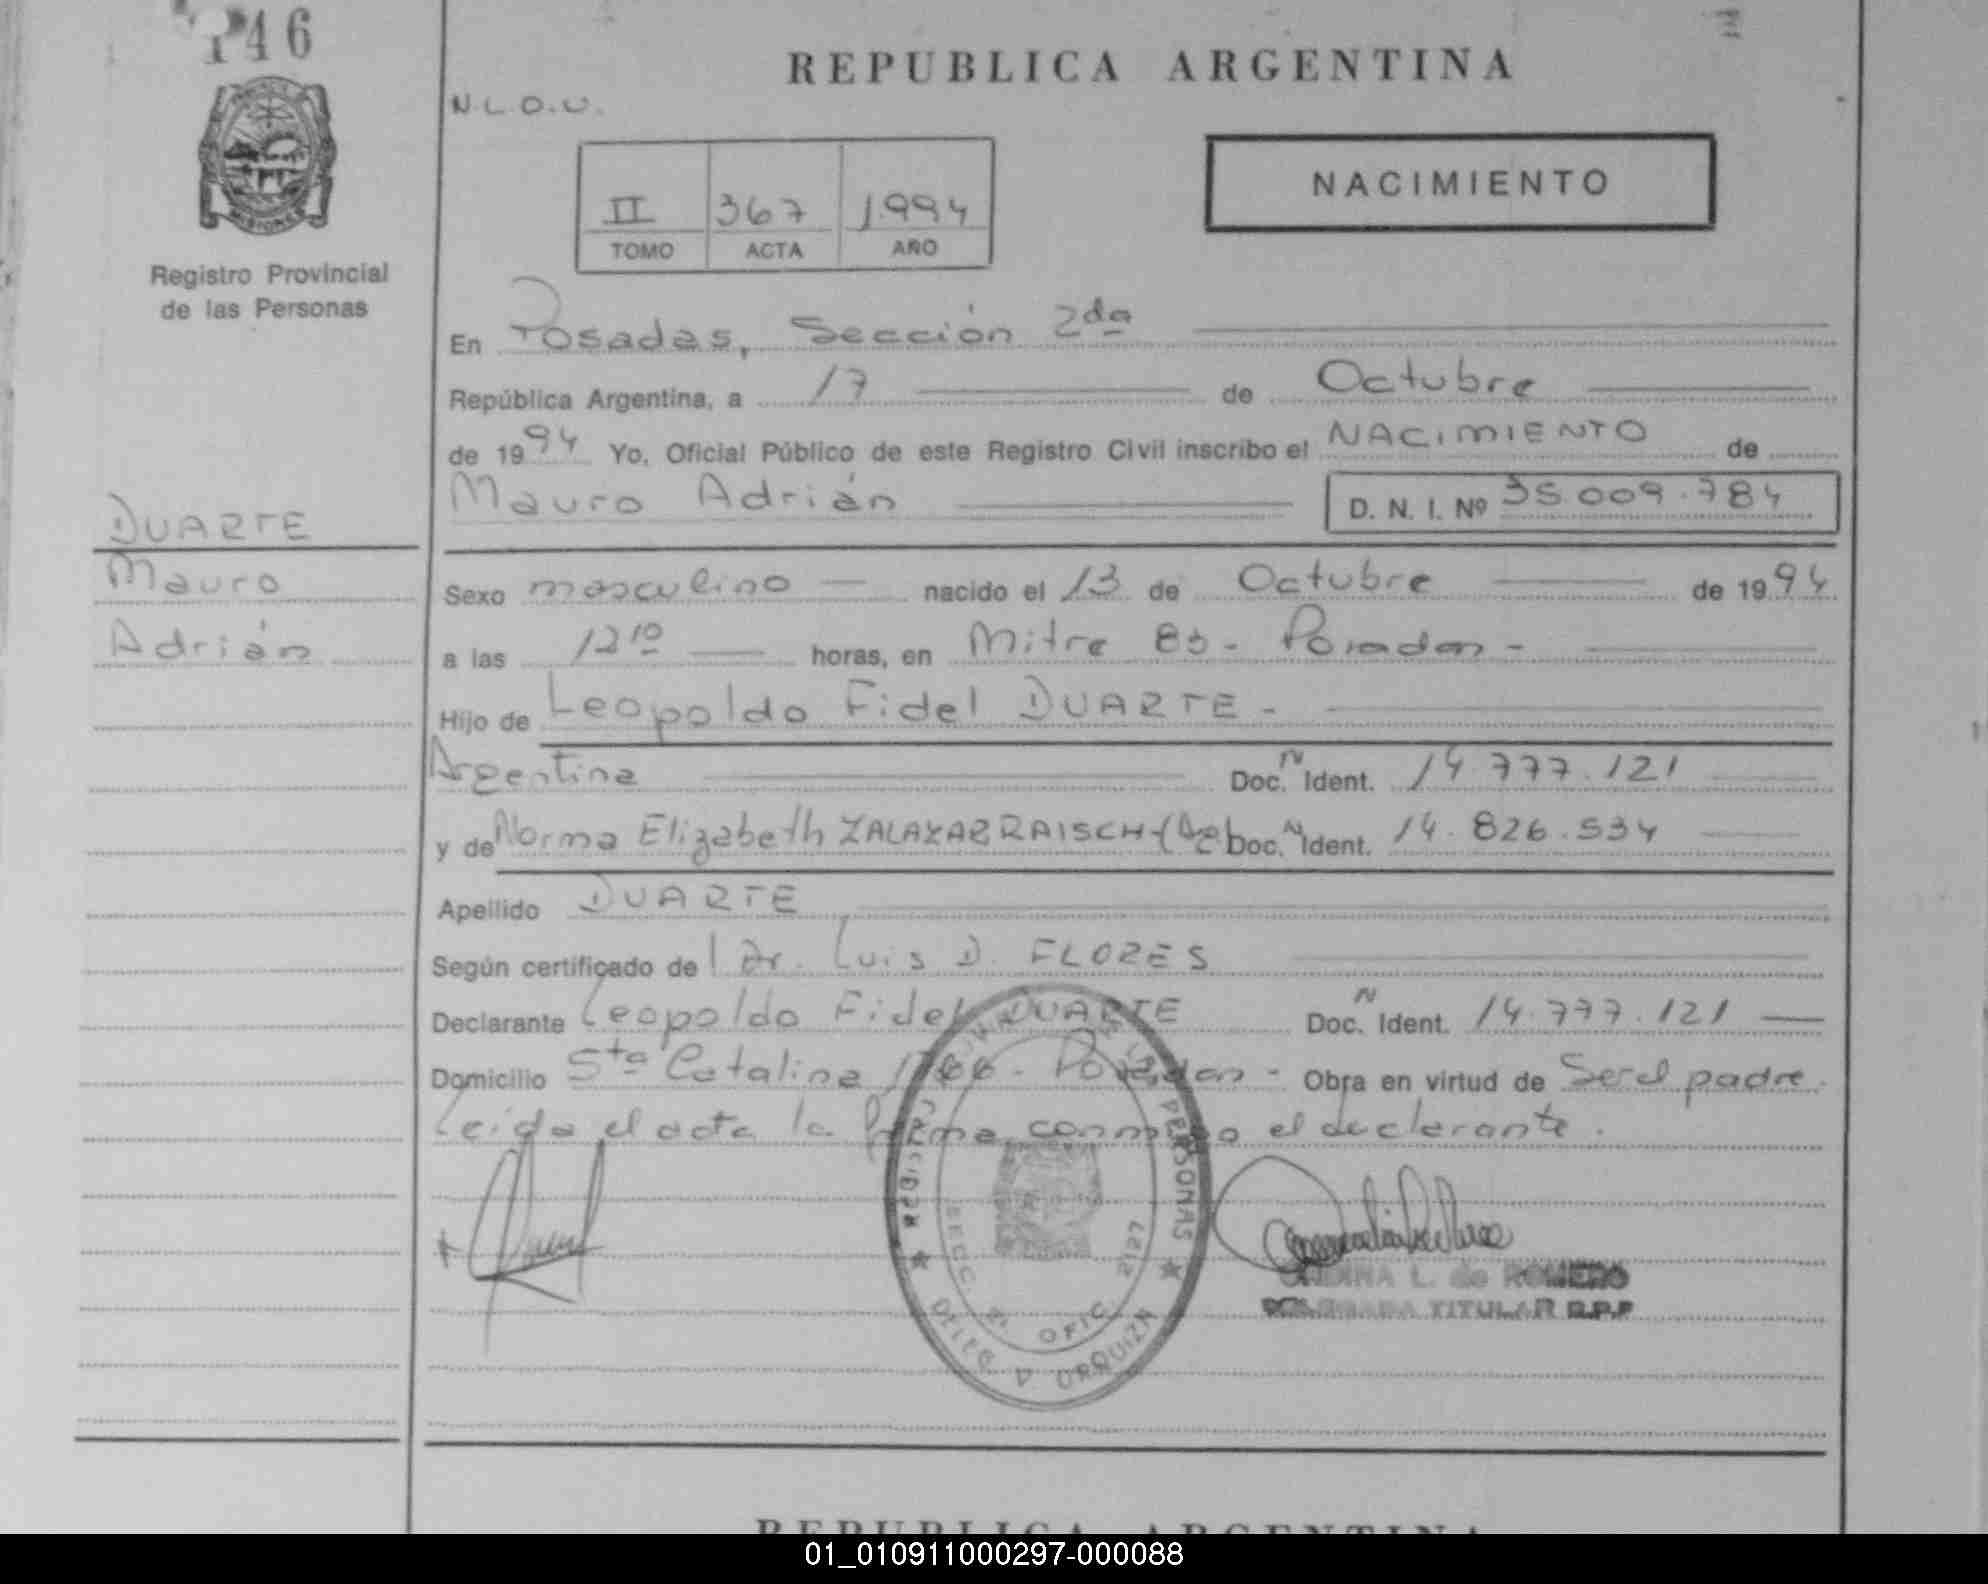 146
REPUBLICA ARGENTINA
N.L.O.U.
NACIMIENTO
II 367 1.994
TOMO ACTA AÑO
Registro Provincial
de las Personas
En Posadas, Sección 2da
República Argentina, a 17 de Octubre
de 1994 Yo, Oficial Público de este Registro Civil inscribo el NACIMIENTO de
Mauro Adrián D. N. I. Nº 35.009.784
DUARTE
Mauro
Adrián
Sexo masculino nacido el 13 de Octubre de 1994
a las 12 10 horas, en Mitre 83 - Posadas -
Hijo de Leopoldo Fidel DUARTE -
Argentina Doc. N Ident. 14.777.121
y de Norma Elizabeth ZALAZAR RAISCH - (Ag) Doc. N Ident. 14.826.534
Apellido DUARTE
Según certificado de l Dr. Luis D. FLORES
Declarante Leopoldo Fidel DUARTE Doc. N Ident. 14.777.121
Domicilio Sta Catalina 1766 - Posadas - Obra en virtud de Ser el padre.
Leida el acta la firma conmigo el declarante.
REGISTRO PERSONAS
SECC. 2ª OFIC. 2127
URQUIZA
L. de ROMERO
TITULAR R.P.P
REPUBLICA ARGENTINA
01_010911000297-000088